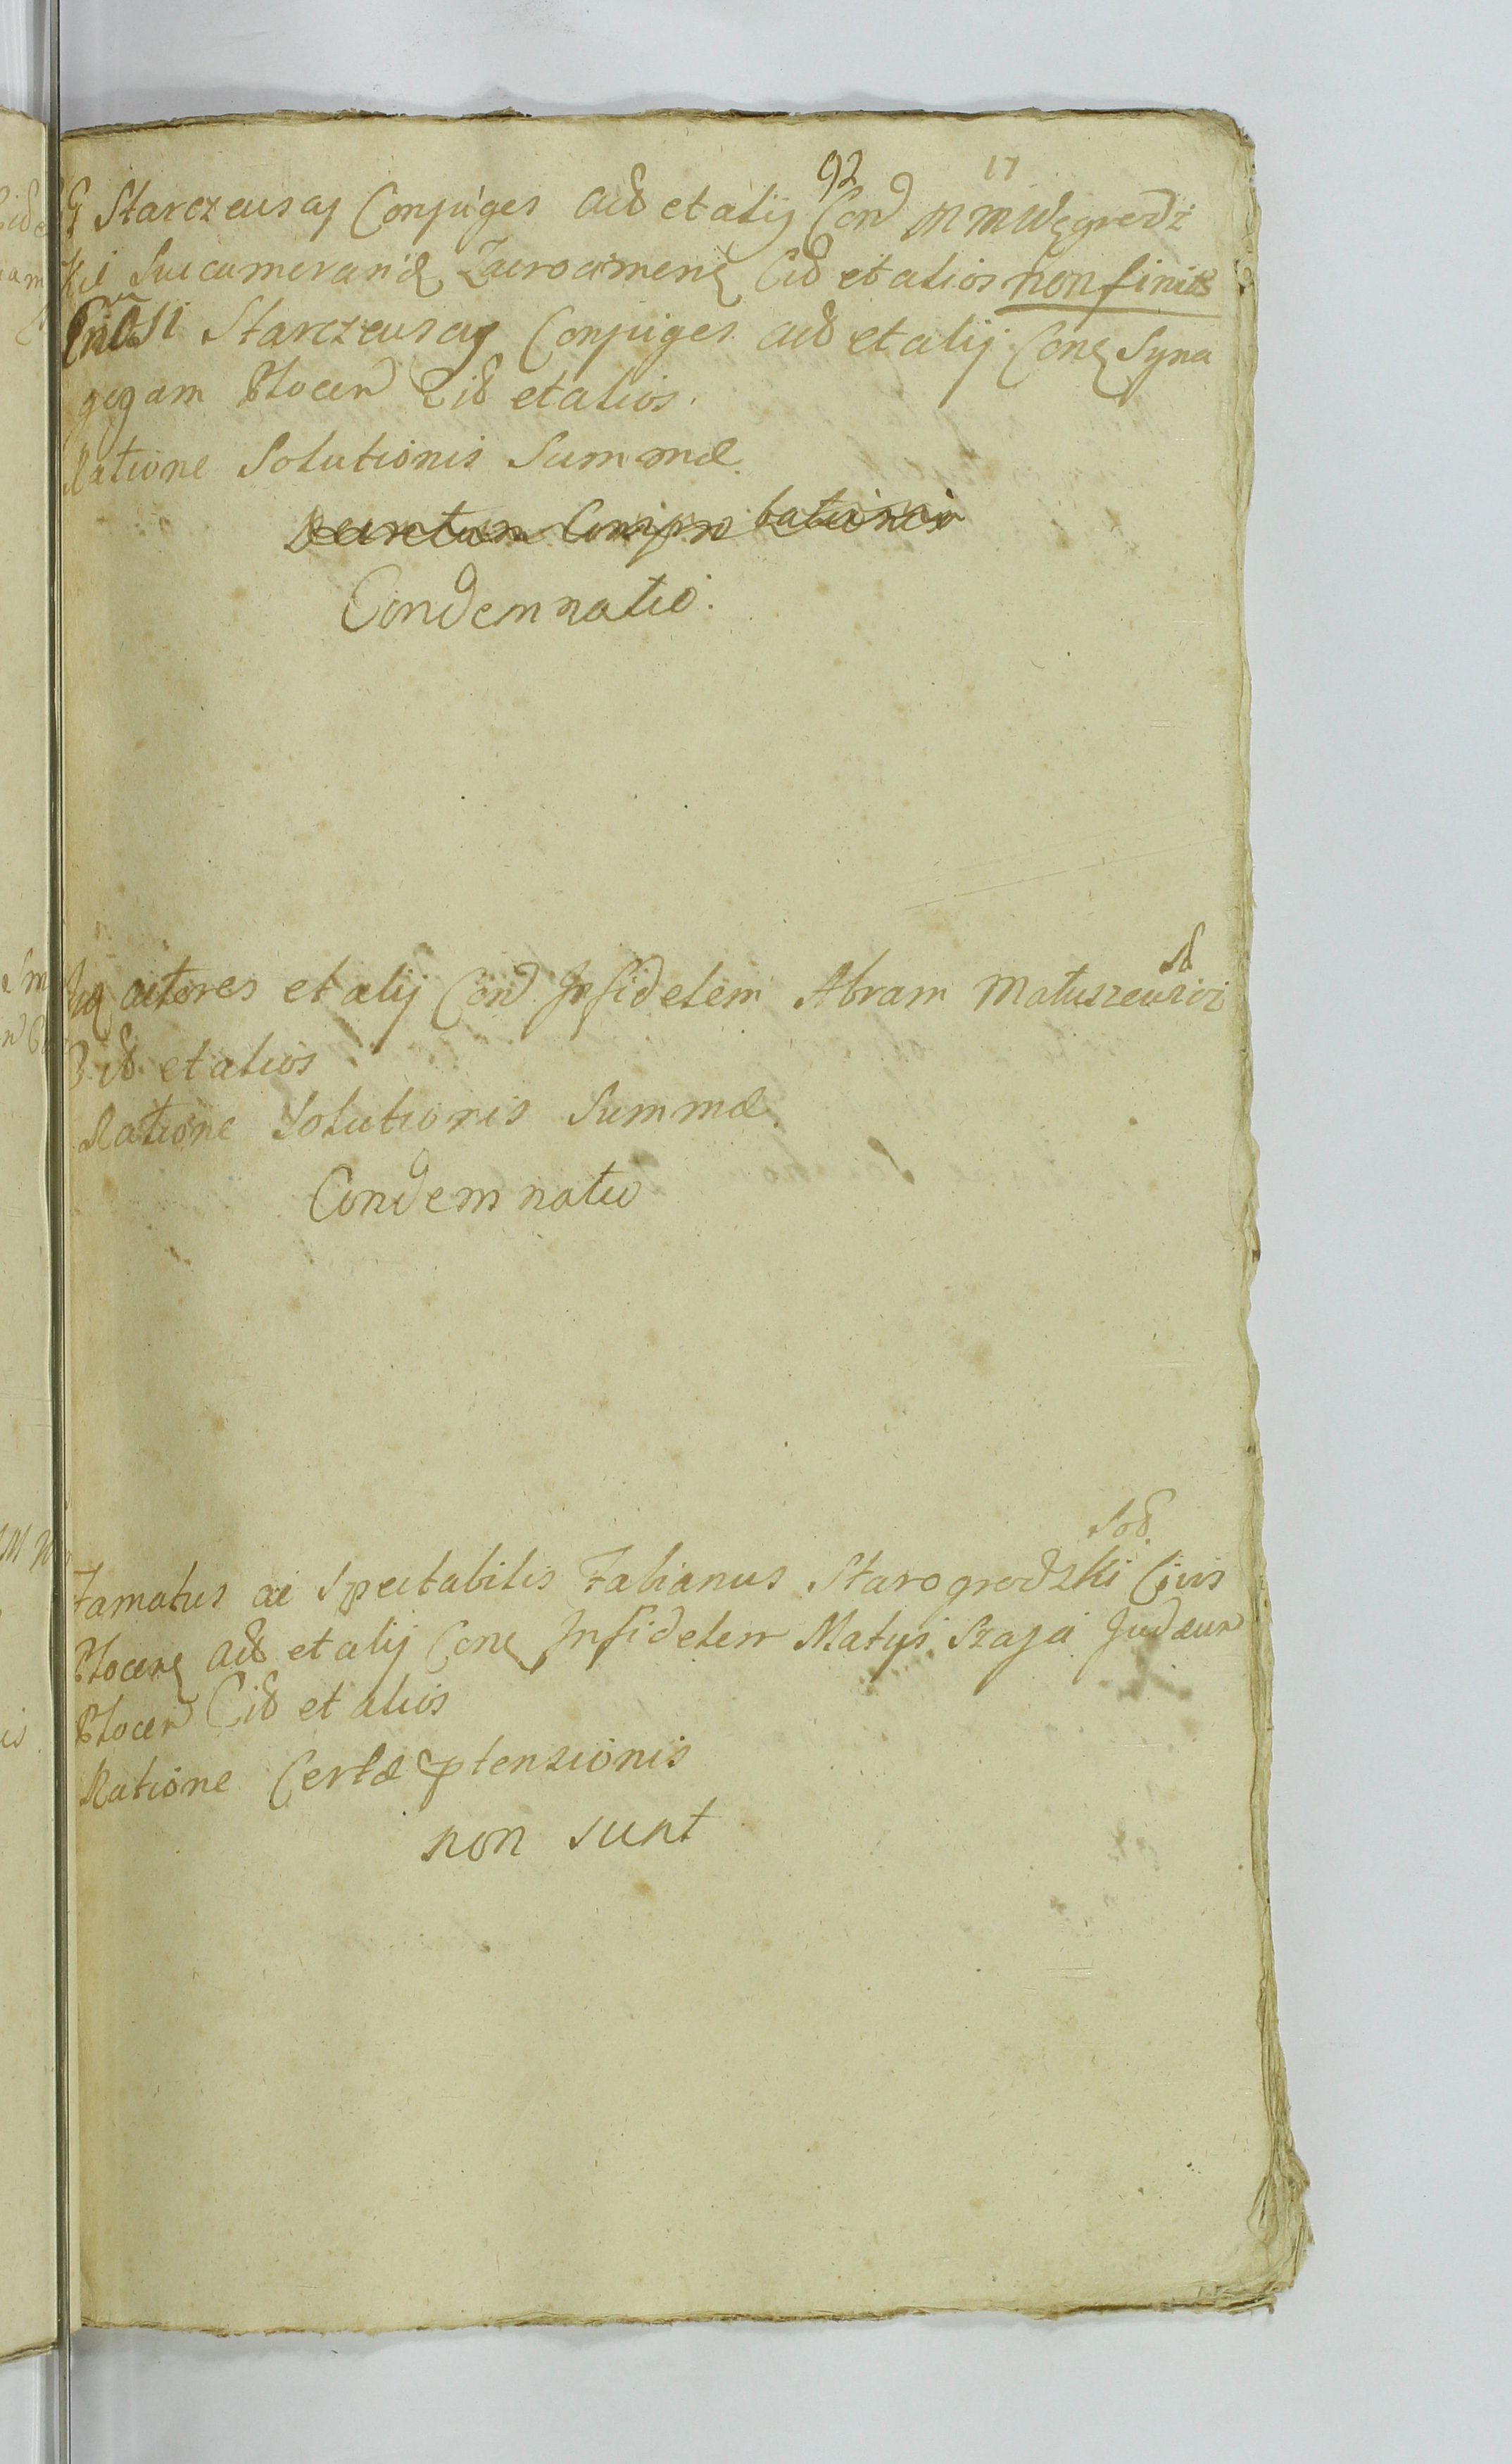 92 17
G Starczewscy Conjuges Act et alij Con M M Węgrodz
Kie Succameran Zacrocimen Cit et alios non finit
Starczewscy Conjuges Act et alij Con Syna
gogam Plocen Cit et alios.
Ratione Solutionis Summæ
Decretum Comprobationis
Condemnatio.
Actores et alij Con Infidelem Abram Matuszewicz
Cit et alios
Ratione Solutionis Summæ
Condemnatio
Famatus ac Spectabilis Fabianus Starogrodzki Civis
Plocen Act et alij Con Infidelem Matys Szaja Judæum
Plocen Cit et alios
Ratione Certæ ptensionis
non sunt